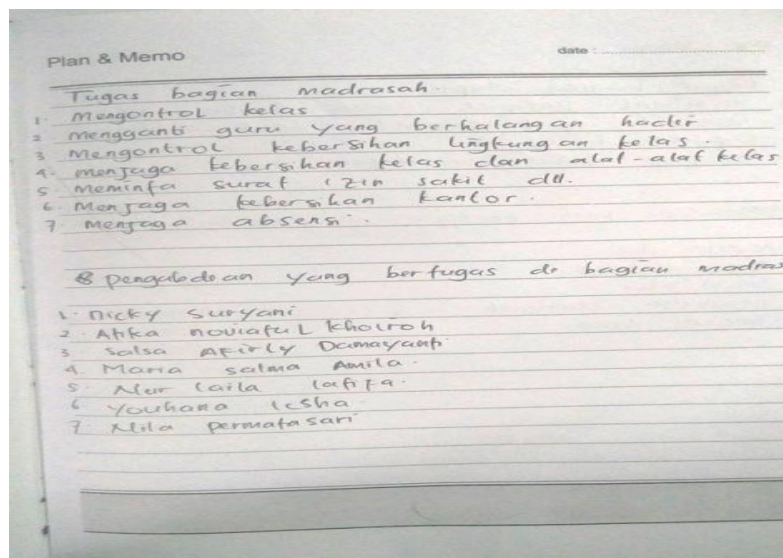 Plan & Memo
date :
Tugas bagian madrasah.
1. Mengontrol kelas
2 mengganti guru yang berhalangan hadir
3 Mengontrol kebersihan lingkungan kelas.
4. menjaga kebersihan kelas dan alat-alat kelas
5 Meminta surat izin sakit dll.
6. Menjaga kebersihan kantor.
7. Menjaga absensi.
pengabdoan yang bertugas di bagian madras
1. Nicky Suryani
2. Atika noviatul khoiroh
3 Salsa Afirly Damayanti
4. Maria salma Amila.
5. Nur laila latifa.
6 Youhana
7 Nila permatasari